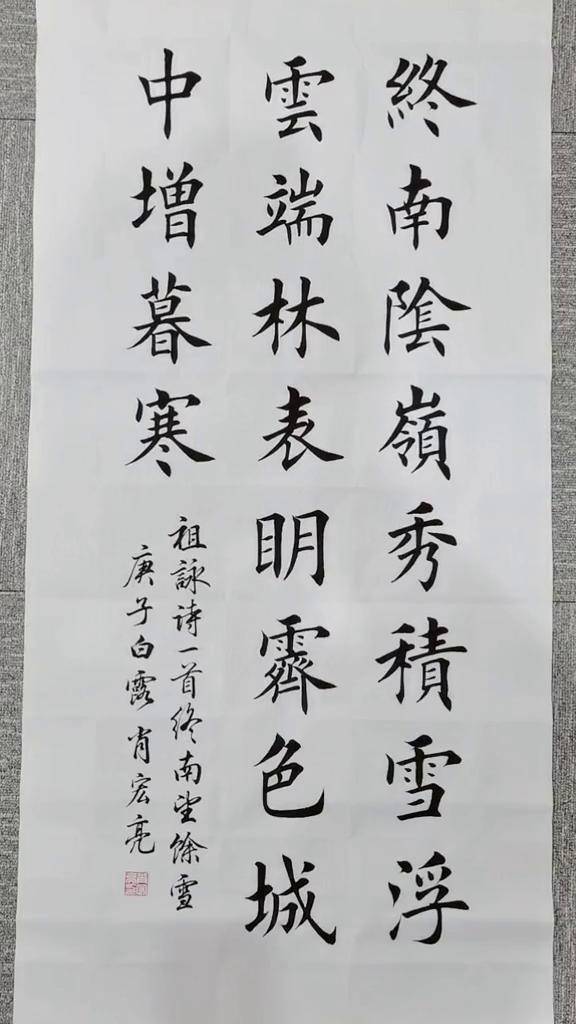 終南陰嶺秀積雪浮
雲端林表眀霽色城
中增暮寒
祖詠诗一首终南望餘雪
庚子白露肖宏亮